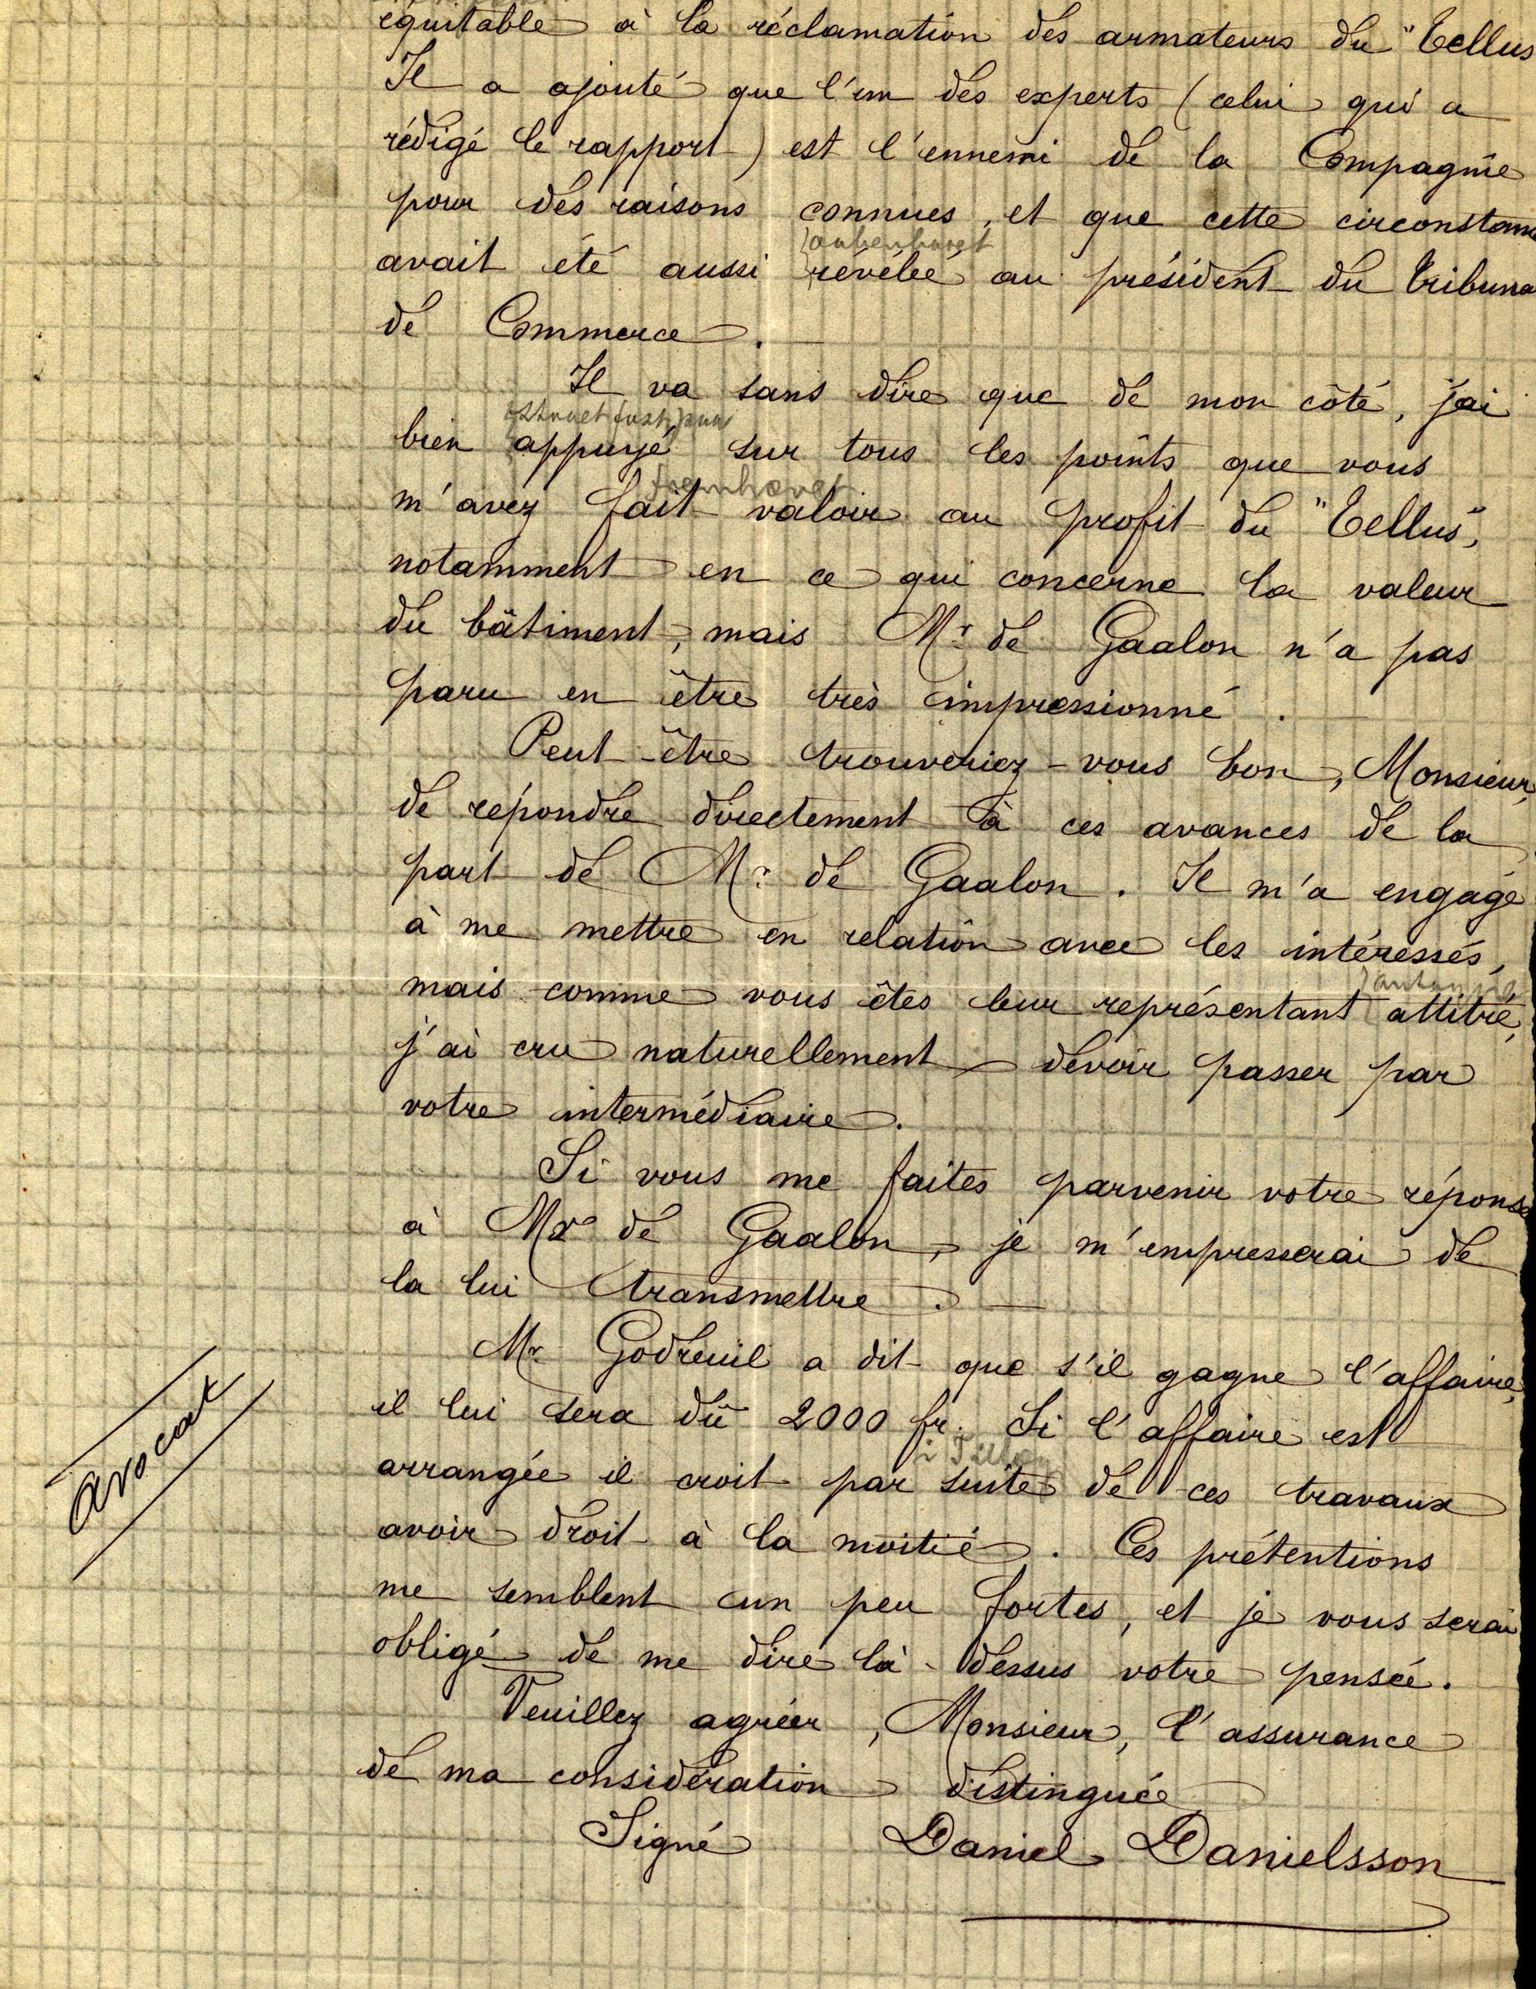 équitable à la réclamation des armateurs du "Tellus
Il a ajouté que l'un des experts (celui qui a
rédigé le rapport) est l'ennemi de la Compagnie
pour des raisons connues, et que cette circonstan
aabenbaret
avait été aussi révélée au président du Tribuna
de Commerce.
Il va sans dire que de mon côté, j'ai
bien appuyé sur tous les points que vous
fremhævet
m'avez fait valoir au profit du "Tellus",
notamment en ce qui concerne la valeur
du bâtiment, mais Mr de Gaalon n'a pas
paru en être très impressionné.
Peut-être trouveriez-vous bon, Monsieur,
de répondre directement à ces avances de la
part de Mr de Gaalon. Il m'a engagé
à me mettre en relation avec les intéressés,
mais comme vous êtes leur représentant attitré,
j'ai cru naturellement devoir passer par
votre intermédiaire.
Si vous me faites parvenir votre réponse
à Mr de Gaalon, je m'empresserai de
la lui transmettre.
Mr Godreuil a dit que s'il gagne l'affaire,
il lui sera dû 2000 fr. Si l'affaire est
avocat
arrangée il croit par suite de ces travaux
avoir droit à la moitié. Ces prétentions
me semblent un peu fortes, et je vous serai
obligé de me dire là-dessus votre pensée.
Veuillez agréer, Monsieur, l'assurance
de ma considération distinguée
Signé Daniel Danielsson